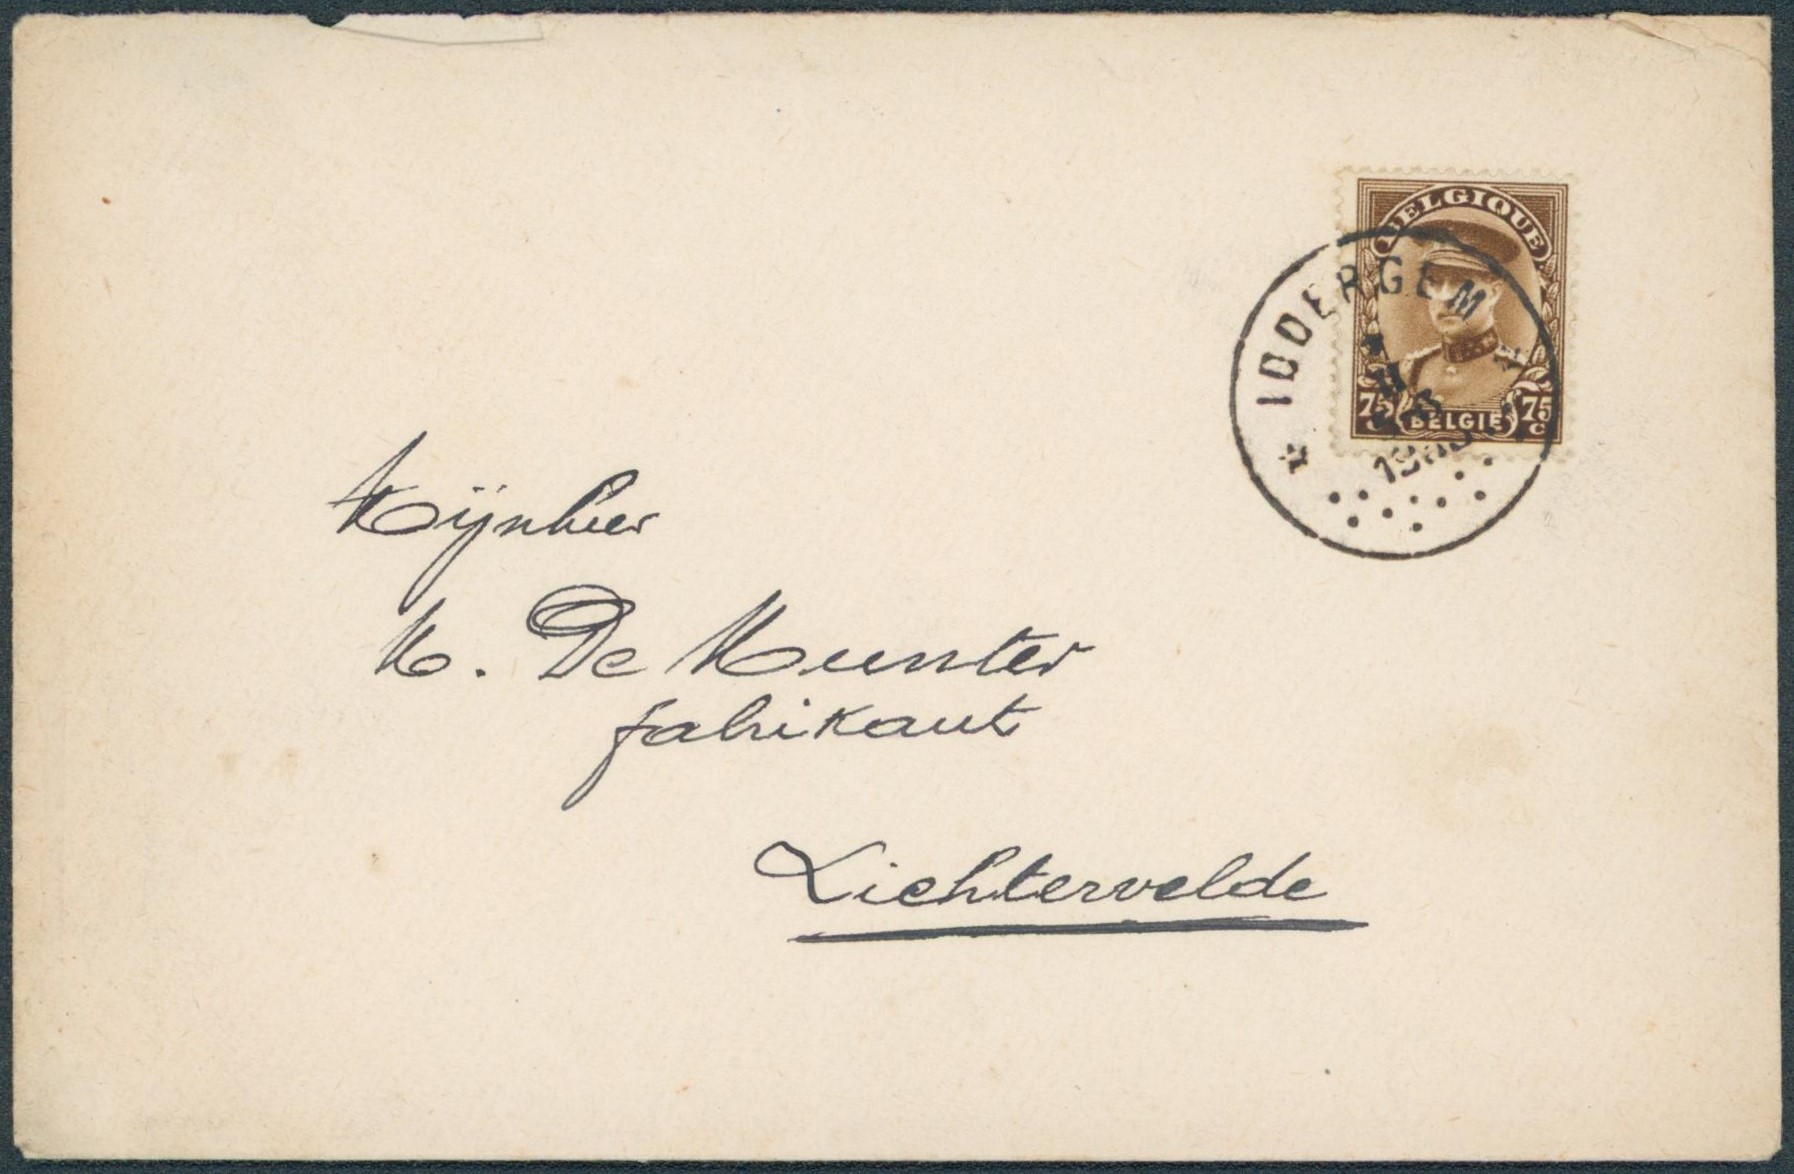 BELGIQUE
IDDERGEM
75 BELGIE 75
C C
Mijnheer
M. De Munter
fabrikant
Lichtervelde